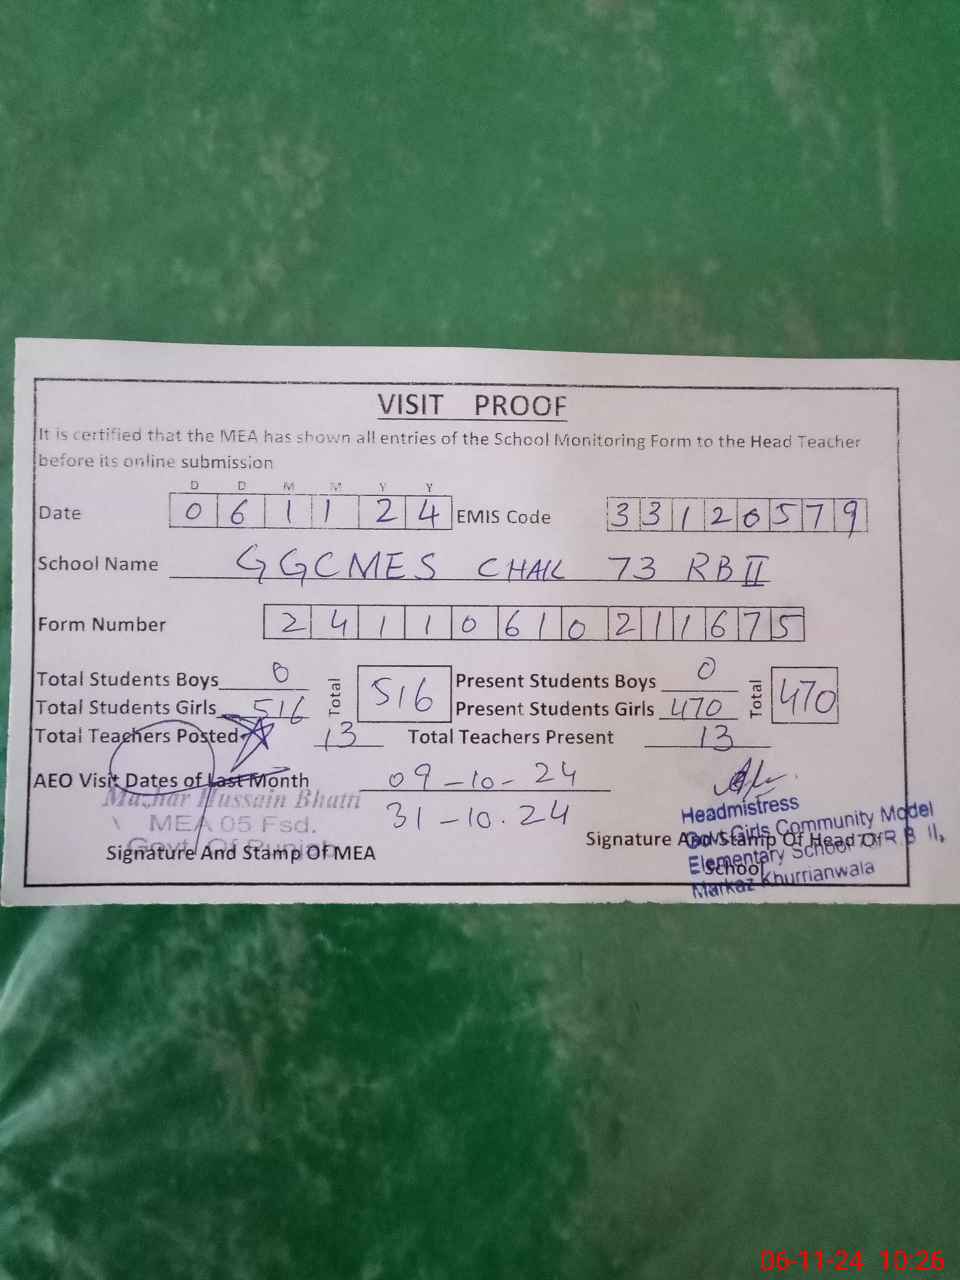 VISIT PROOF
It is certified that the MEA has shown all entries of the School Monitoring Form to the Head Teacher
before its online submission
D D M M Y Y
Date 0 6 1 1 2 4 EMIS Code 3 3 1 2 0 5 7 9
School Name GGCMES CHAK 73 RB II
Form Number 2 4 1 1 0 6 1 0 2 1 1 6 7 5
Total Students Boys 0 Total 516 Present Students Boys 0 Total 470
Total Students Girls 516 Present Students Girls 470
Total Teachers Posted 13 Total Teachers Present 13
AEO Visit Dates of Last Month 09-10-24
31-10.24
Mazhar Hussain Bhatti
MEA 05 Fsd.
Govt. Of Punjab
Signature And Stamp Of MEA
Signature And Stamp Of Head Of
School
Headmistress
Govt. Girls Community Model
Elementary School 73 R.B II,
Markaz Khurrianwala
06-11-24 10:26